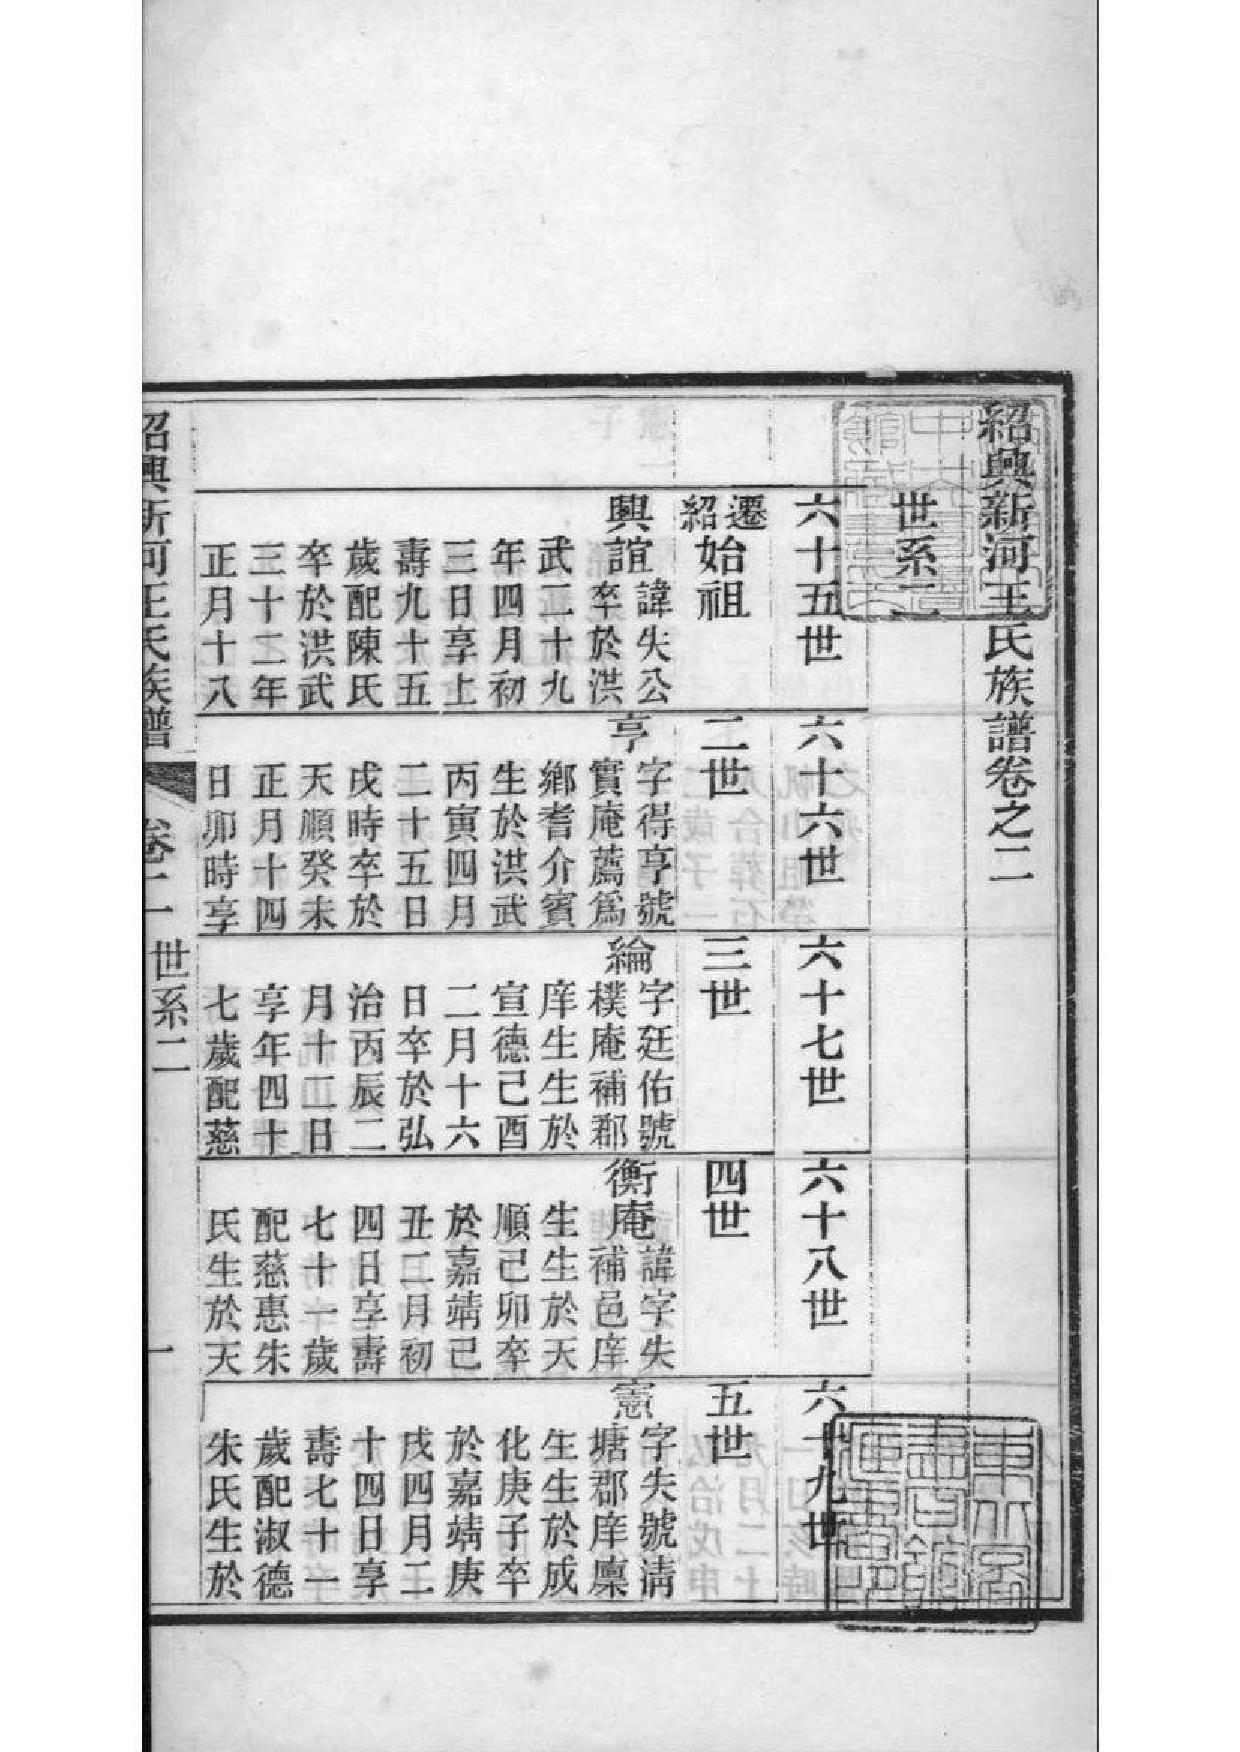 紹興新河王氏族譜卷之二
世系二
六十五世
遷紹始祖
興誼
諱失公
卒於洪
武二十九
年四月初
三日享上
壽九十五
歲配陳氏
卒於洪武
三十二年
正月十八
六十六世
二世
亨
字得亨號
實庵薦爲
鄉耆介賓
生於洪武
丙寅四月
二十五日
戌時卒於
天順癸未
正月十四
日卯時享
六十七世
三世
綸
字廷佑號
樸庵補郡
庠生生於
宣德己酉
二月十六
日卒於弘
治丙辰二
月十二日
享年四十
七歲配慈
六十八世
四世
衡庵
諱字失
補邑庠
生生於天
順己卯卒
於嘉靖己
丑二月初
四日享壽
七十一歲
配慈惠朱
氏生於天
六十九世
五世
憲
字失號清
塘郡庠廩
生生於成
化庚子卒
於嘉靖庚
戌四月二
十四日享
壽七十一
歲配淑德
朱氏生於
紹興新河王氏族譜 卷二 世系二 一